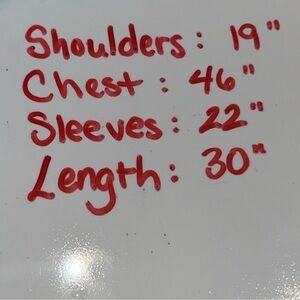 Shoulders: 19"
Chest: 46"
Sleeves: 22"
Length: 30"